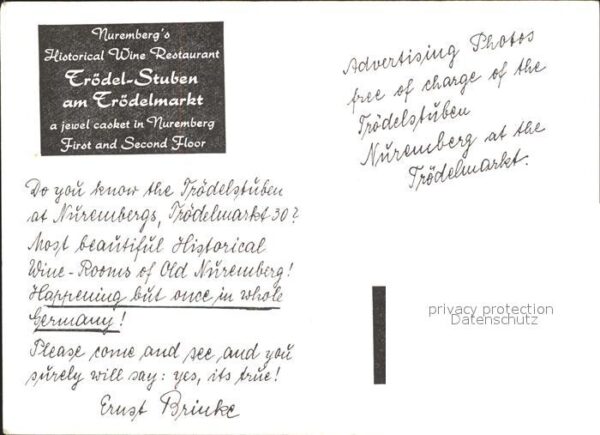 Nuremberg's
Historical Wine Restaurant
Trödel-Stuben
am Trödelmarkt
a jewel casket in Nuremberg
First and Second Floor
Do you know the Trödelstuben
at Nürembergs, Trödelmarkt 30?
Most beautiful Historical
Wine-Rooms of Old Nüremberg!
Happening but once in whole
Germany!
Please come and see and you
surely will say: yes, its true!
Ernst Brinke
Advertising Photos
free of charge of the
Trödelstüben
Nüremberg at the
Trödelmarkt.
privacy protection
Datenschutz